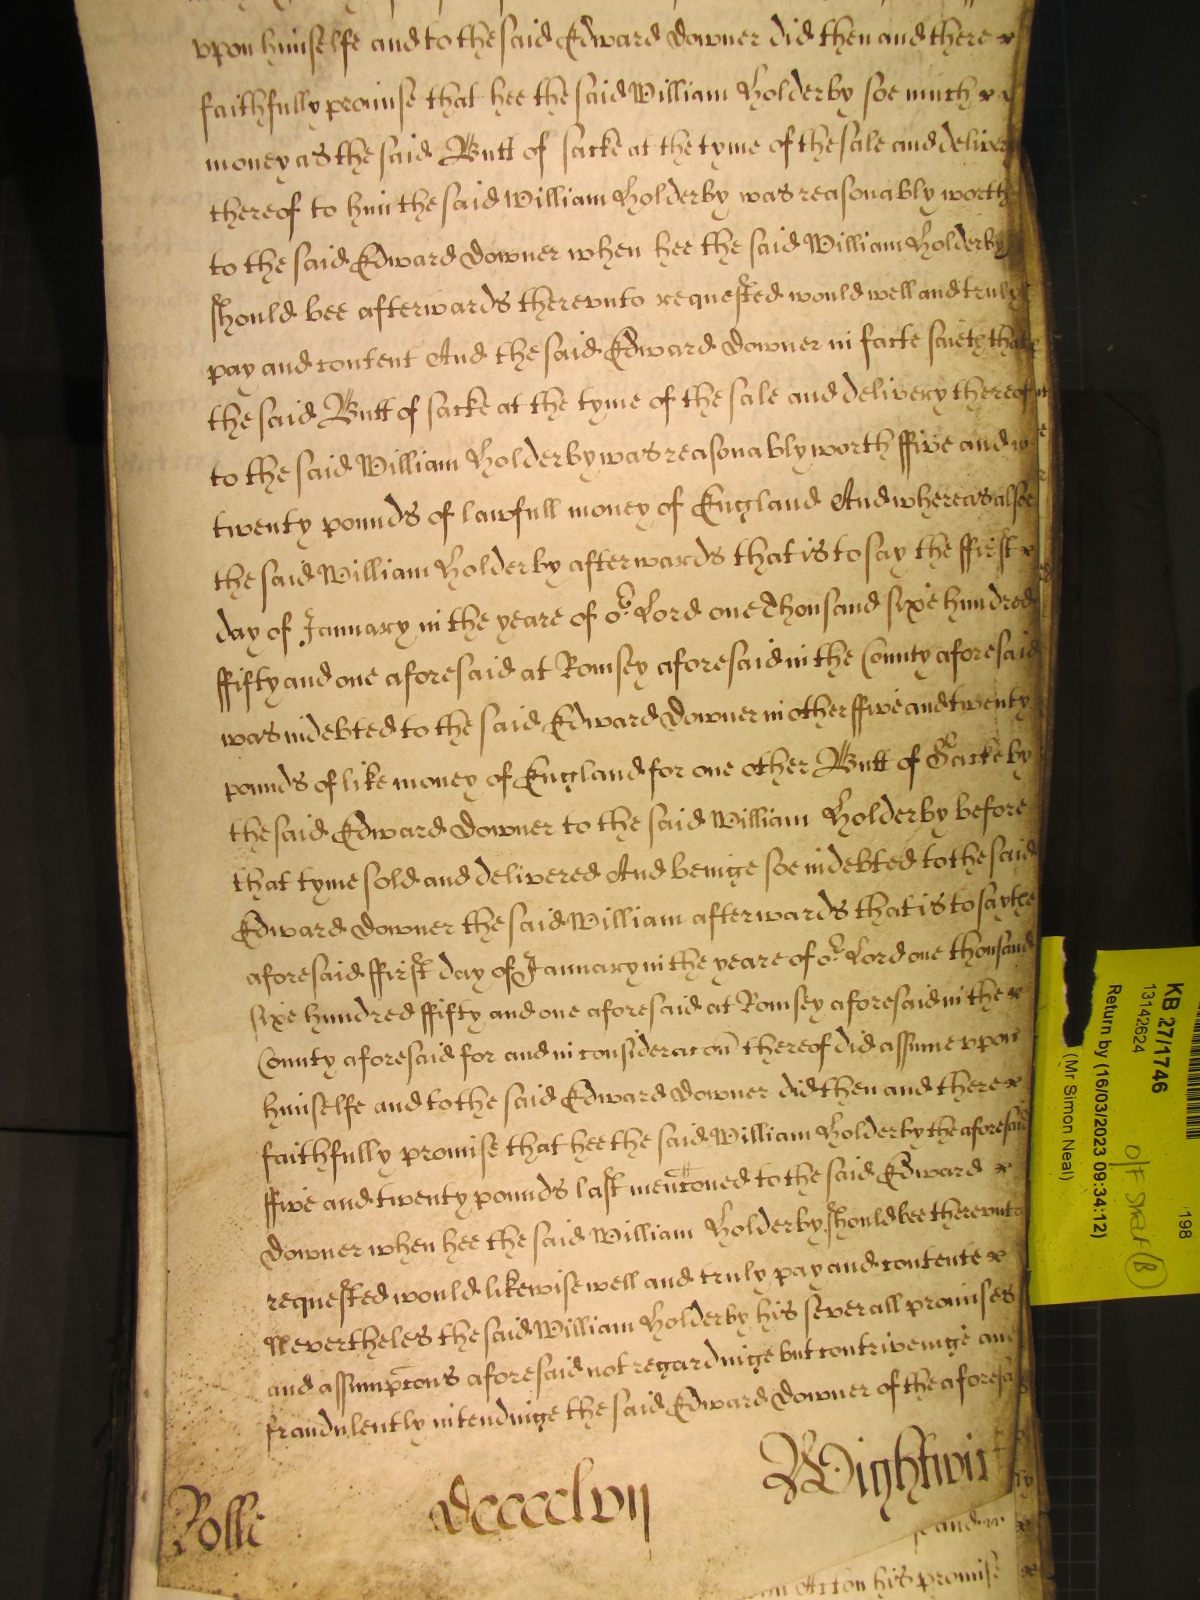 vpon himselfe and to the said Edward Downer did then and there
faithfully promise that hee the said William Holderby soe much
money as the said Butt of sacke at the tyme of the sale and delivery
thereof to him the said William Holderby was reasonably worth
to the said Edward Downer when hee the said William Holderby
should bee afterwards therevnto requested would well and truly
pay and content And the said Edward Downer in facte saieth that
the said Butt of sacke at the tyme of the sale and delivery thereof
to the said William Holderby was reasonably worth ffive and
twenty pounds of lawfull money of England And whereas alsoe
the said William Holderby afterwards that is to say the ffirst
day of January in the yeare of or Lord one thousand sixe hundred
ffifty and one aforesaid at Romsey aforesaid in the County aforesaid
was indebted to the said Edward Downer in other ffive and twenty
pounds of like money of England for one other Butt of Sacke by
the said Edward Downer to the said William Holderby before
that tyme sold and delivered And beinge soe indebted to the said
Edward Downer the said William afterwards that is to say the
aforesaid ffirst day of January in the yeare of or Lord one thousand
sixe hundred ffifty and one aforesaid at Romsey aforesaid in the
County aforesaid for and in consideracon thereof did assume vpon
himselfe and to the said Edward Downer did then and there
faithfully promise that hee the said William Holderby the aforesaid
ffive and twenty pounds last mentioned to the said Edward
Downer when hee the said William Holderby should bee therevnto
requested would likewise well and truly pay and contente
Nevertheles the said William Holderby his severall promises
and assumptions aforesaid not regardinge but contriveinge and
fraudulently intendinge the said Edward Downer of the aforesa
Rolle Dcccclvij Wightwic
and
his promise
KB 27/1746
13142624
198
Return by (16/03/2023 09:34:12)
(Mr Simon Neal)